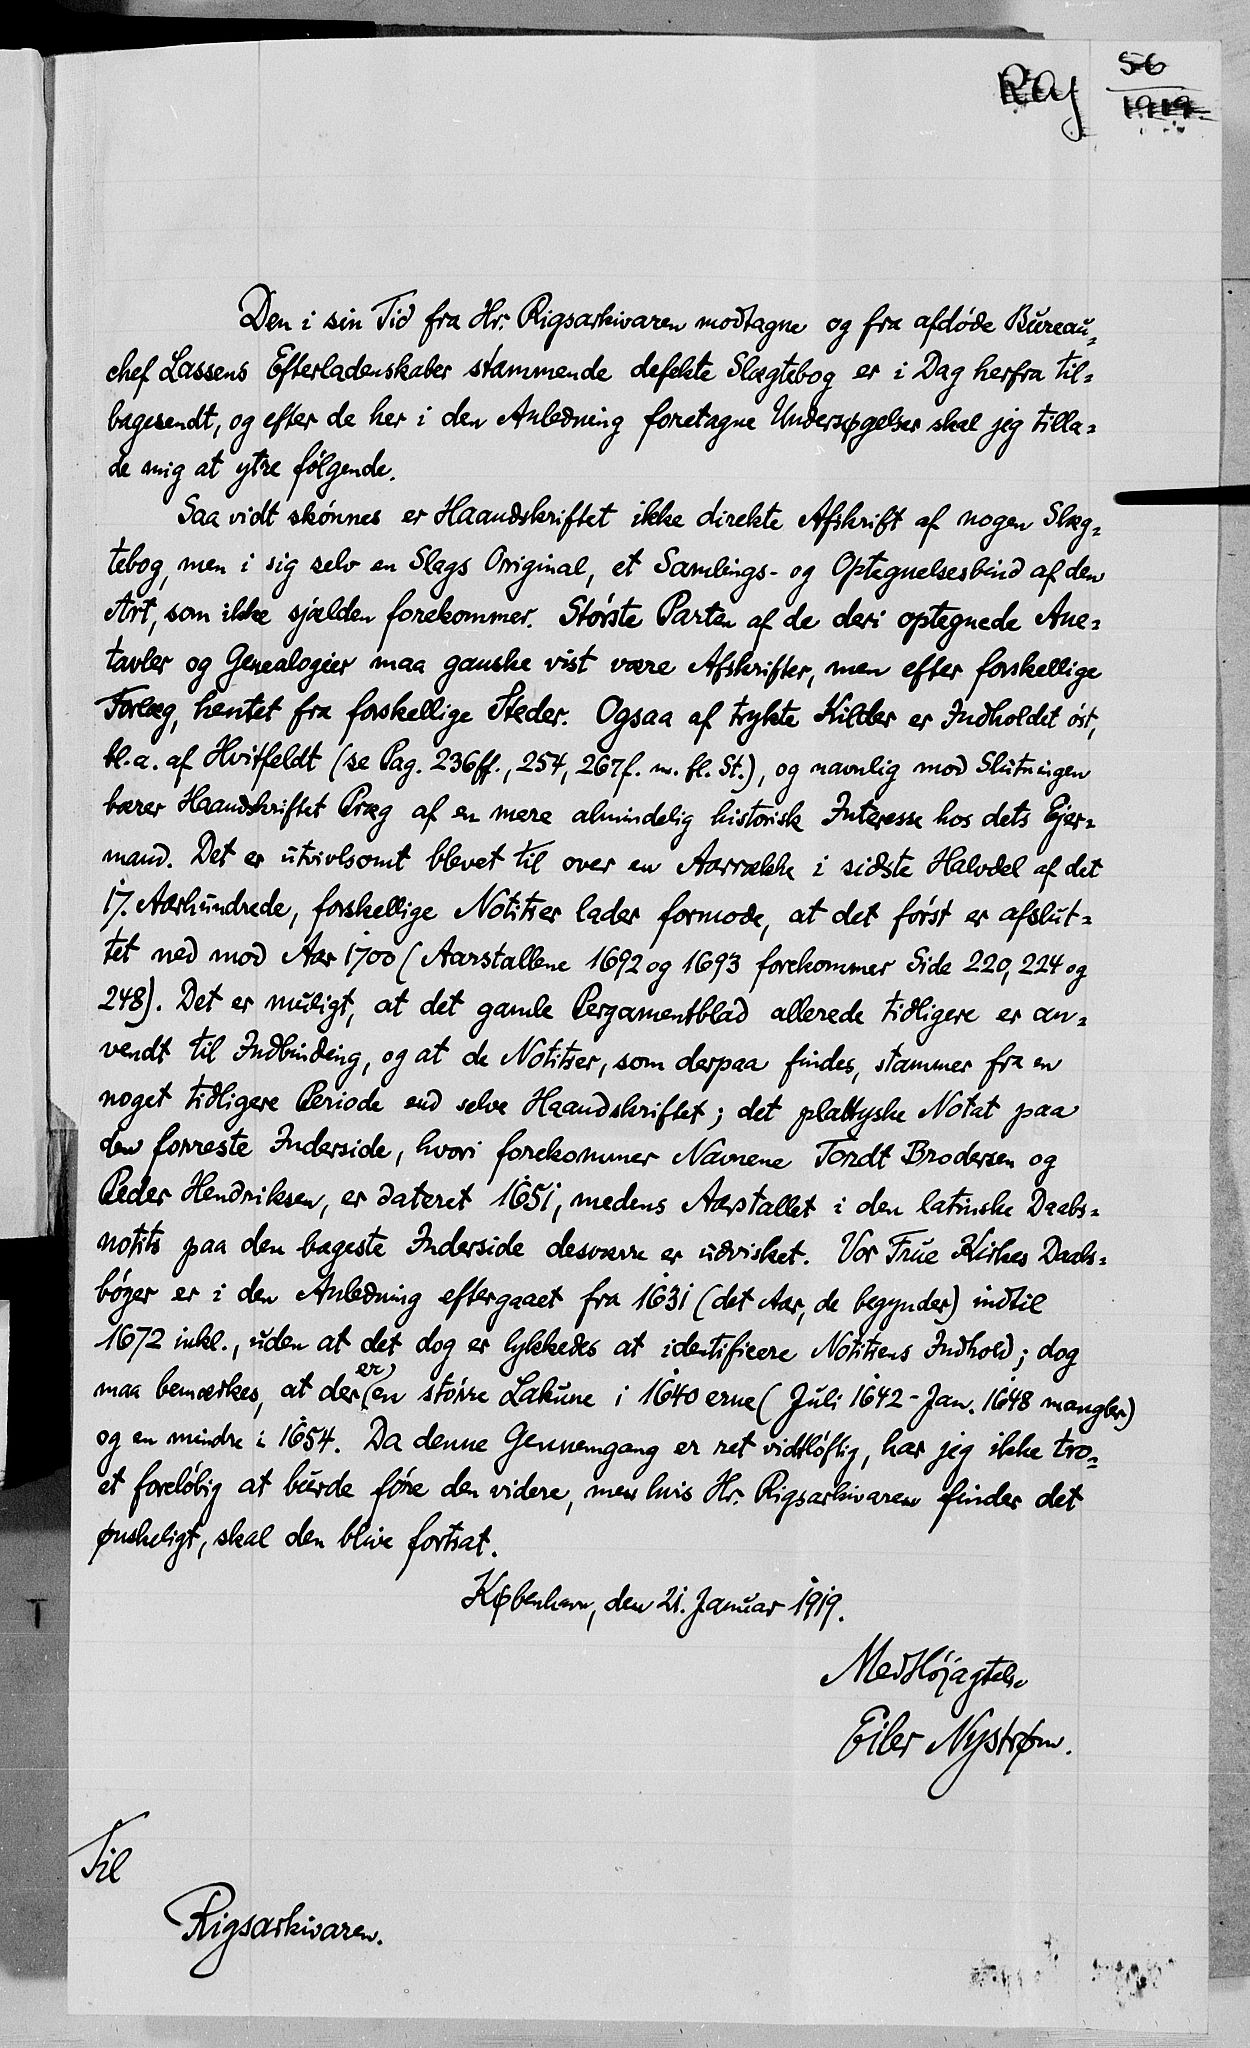 56
1919.
Den i sin Tid fra Hr. Rigsarkivaren modtagne og fra afdøde Bureau-
chef Lassens Efterladenskaber stammende defekte Slægtebog er i Dag herfra til-
bagesendt, og efter de her i den Anledning foretagne Undersøgelser skal jeg tilla-
de mig at ytre følgende.
Saa vidt skønnes er Haandskriftet ikke direkte Afskrift af nogen Slæg-
tebog, men i sig selv en Slags Original, et Samlings- og Optegnelsesbind af den
Art, som ikke sjælden forekommer. Største Parten af de deri optegnede Ane-
tavler og Genealogier maa ganske vist være Afskrifter, men efter forskellige
Forlæg, hentet fra forskellige Steder. Ogsaa af trykte Kilder er Indholdet øst,
bl.a. af Hvitfeldt (se Pag. 236ff., 254, 267f. m. fl. St.), og navnlig mod Slutningen
bærer Haandskriftet Præg af en mere almindelig historisk Interesse hos dets Ejer-
mand. Det er utvivlsomt blevet til over en Aarrække i sidste Halvdel af det
17. Aarhundrede, forskellige Notitser lader formode, at det først er afslut-
tet ned mod Aar 1700 (Aarstallene 1692 og 1693 forekommer Side 220, 224 og
248). Det er muligt, at det gamle Pergamentblad allerede tidligere er an-
vendt til Indbinding, og at de Notitser, som derpaa findes, stammer fra en
noget tidligere Periode end selve Haandskriftet; det plattyske Notat paa
den forreste Inderside, hvori forekommer Navnene Torrdt Brodersen og
Peder Hendriksen, er dateret 1651, medens Aarstallet i den latinske Daabs-
notits paa den bageste Inderside desværre er udvisket. Vor Frue Kirkes Daabs-
bøger er i den Anledning eftergaaet fra 1631 (det Aar, de begynder) indtil
1672 inkl., uden at det dog er lykkedes at identificere Notitsens Indhold; dog
maa bemærkes, at der er en større Lakune i 1640erne (Juli 1642 - Jan. 1648 mangler)
og en mindre i 1654. Da denne Gennemgang er ret vidtløftig, har jeg ikke tro-
et foreløbig at burde føre den videre, men hvis Hr. Rigsarkivaren finder det
ønskeligt, skal den blive fortsat.
København, den 21. Januar 1919.
Med Højagtelse
Eiler Nystrøm.
Til
Rigsarkivaren.